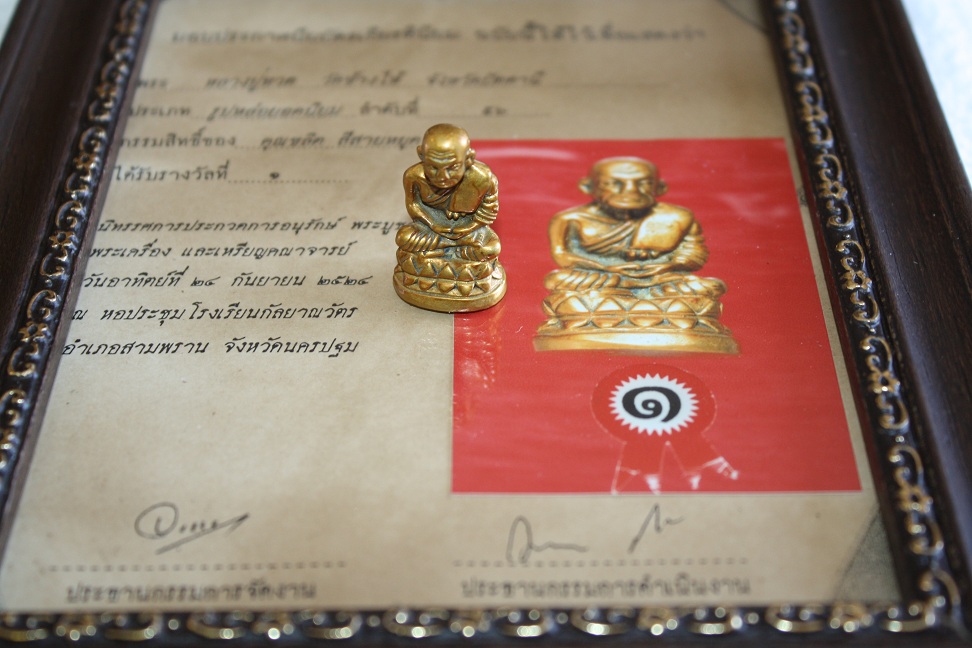 มอบประกาศนียบัตรเกียรตินิยม ฉบับนี้ให้ไว้เพื่อแสดงว่า
พระ หลวงปู่ทวด วัดช้างให้ จังหวัดปัตตานี
ประเภท รูปหล่อยอดนิยม ลำดับที่ ๕๖
กรรมสิทธิ์ของ คุณชลิต
ได้รับรางวัลที่ ๑
นิทรรศการประกวดการอนุรักษ์ พระบูชา
พระเครื่อง และเหรียญคณาจารย์
วันอาทิตย์ที่ ๒๔ กันยายน ๒๕๒๔
ณ หอประชุมโรงเรียนกัลยาณวัตร
อำเภอสามพราน จังหวัดนครปฐม
๑
ประธานกรรมการจัดงาน
ประธานกรรมการดำเนินงาน